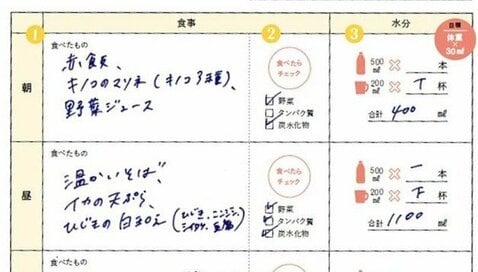 1 食事 2 3 水分
目標 体重×30㎖
朝
食べたもの
赤飯、
キノコのマリネ(キノコ3種)、
野菜ジュース
食べたらチェック
野菜
タンパク質
炭水化物
500㎖ × 本
200㎖ × 杯
合計 400 ㎖
昼
食べたもの
温かいそば、
イカの天ぷら、
ひじきの白和え(ひじき、ニンジン、
シイタケ、豆腐)
食べたらチェック
野菜
タンパク質
炭水化物
500㎖ × 一 本
200㎖ × 下 杯
合計 1100 ㎖
食べたもの